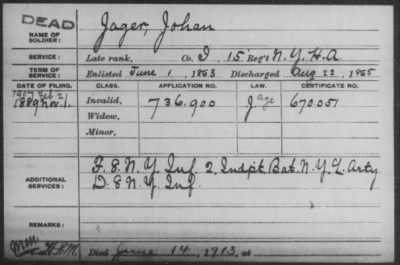 DEAD
NAME OF SOLDIER: Jager, Johan
SERVICE: Late rank, Co. I, 15 Reg't N.Y.H.A.
TERM OF SERVICE: Enlisted June 1, 1863 Discharged Aug 22, 1865
DATE OF FILING. CLASS. APPLICATION NO. LAW. CERTIFICATE NO.
1907 Feb 21
1889 Nov. 1. Invalid, 736.900 J. age 670051
Widow,
Minor,
ADDITIONAL SERVICES: F. 8 N.Y. Inf. 2. Indpt. Bat. N.Y.L. Arty
D. 8 N.Y. Inf.
REMARKS:
Died June 14, 1913, at